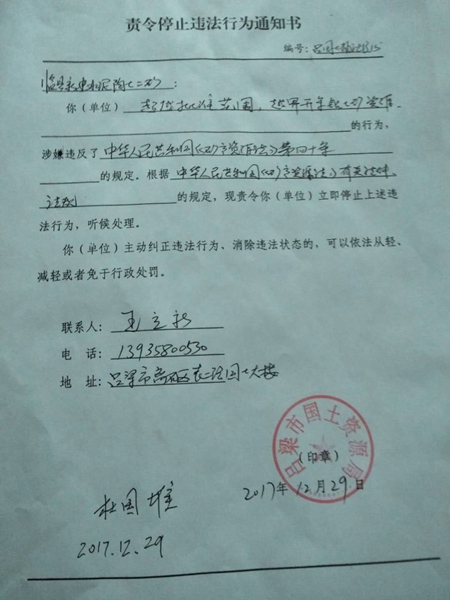 责令停止违法行为通知书
编号:
你（单位） 超越批准范围，越界开采铝土矿资源.
的行为，
涉嫌违反了 中华人民共和国《矿产资源法》第四十条
的规定。根据 中华人民共和国《矿产资源法》有关法律.
法规 的规定，现责令你（单位）立即停止上述违
法行为，听候处理。
你（单位）主动纠正违法行为、消除违法状态的，可以依法从轻、
减轻或者免于行政处罚。
联系人：王立新
电 话：13935800530
地 址：吕梁市离石区 国土大楼
吕梁市国土资源局
（印章）
2017年12月29日
杜国雄
2017.12.29